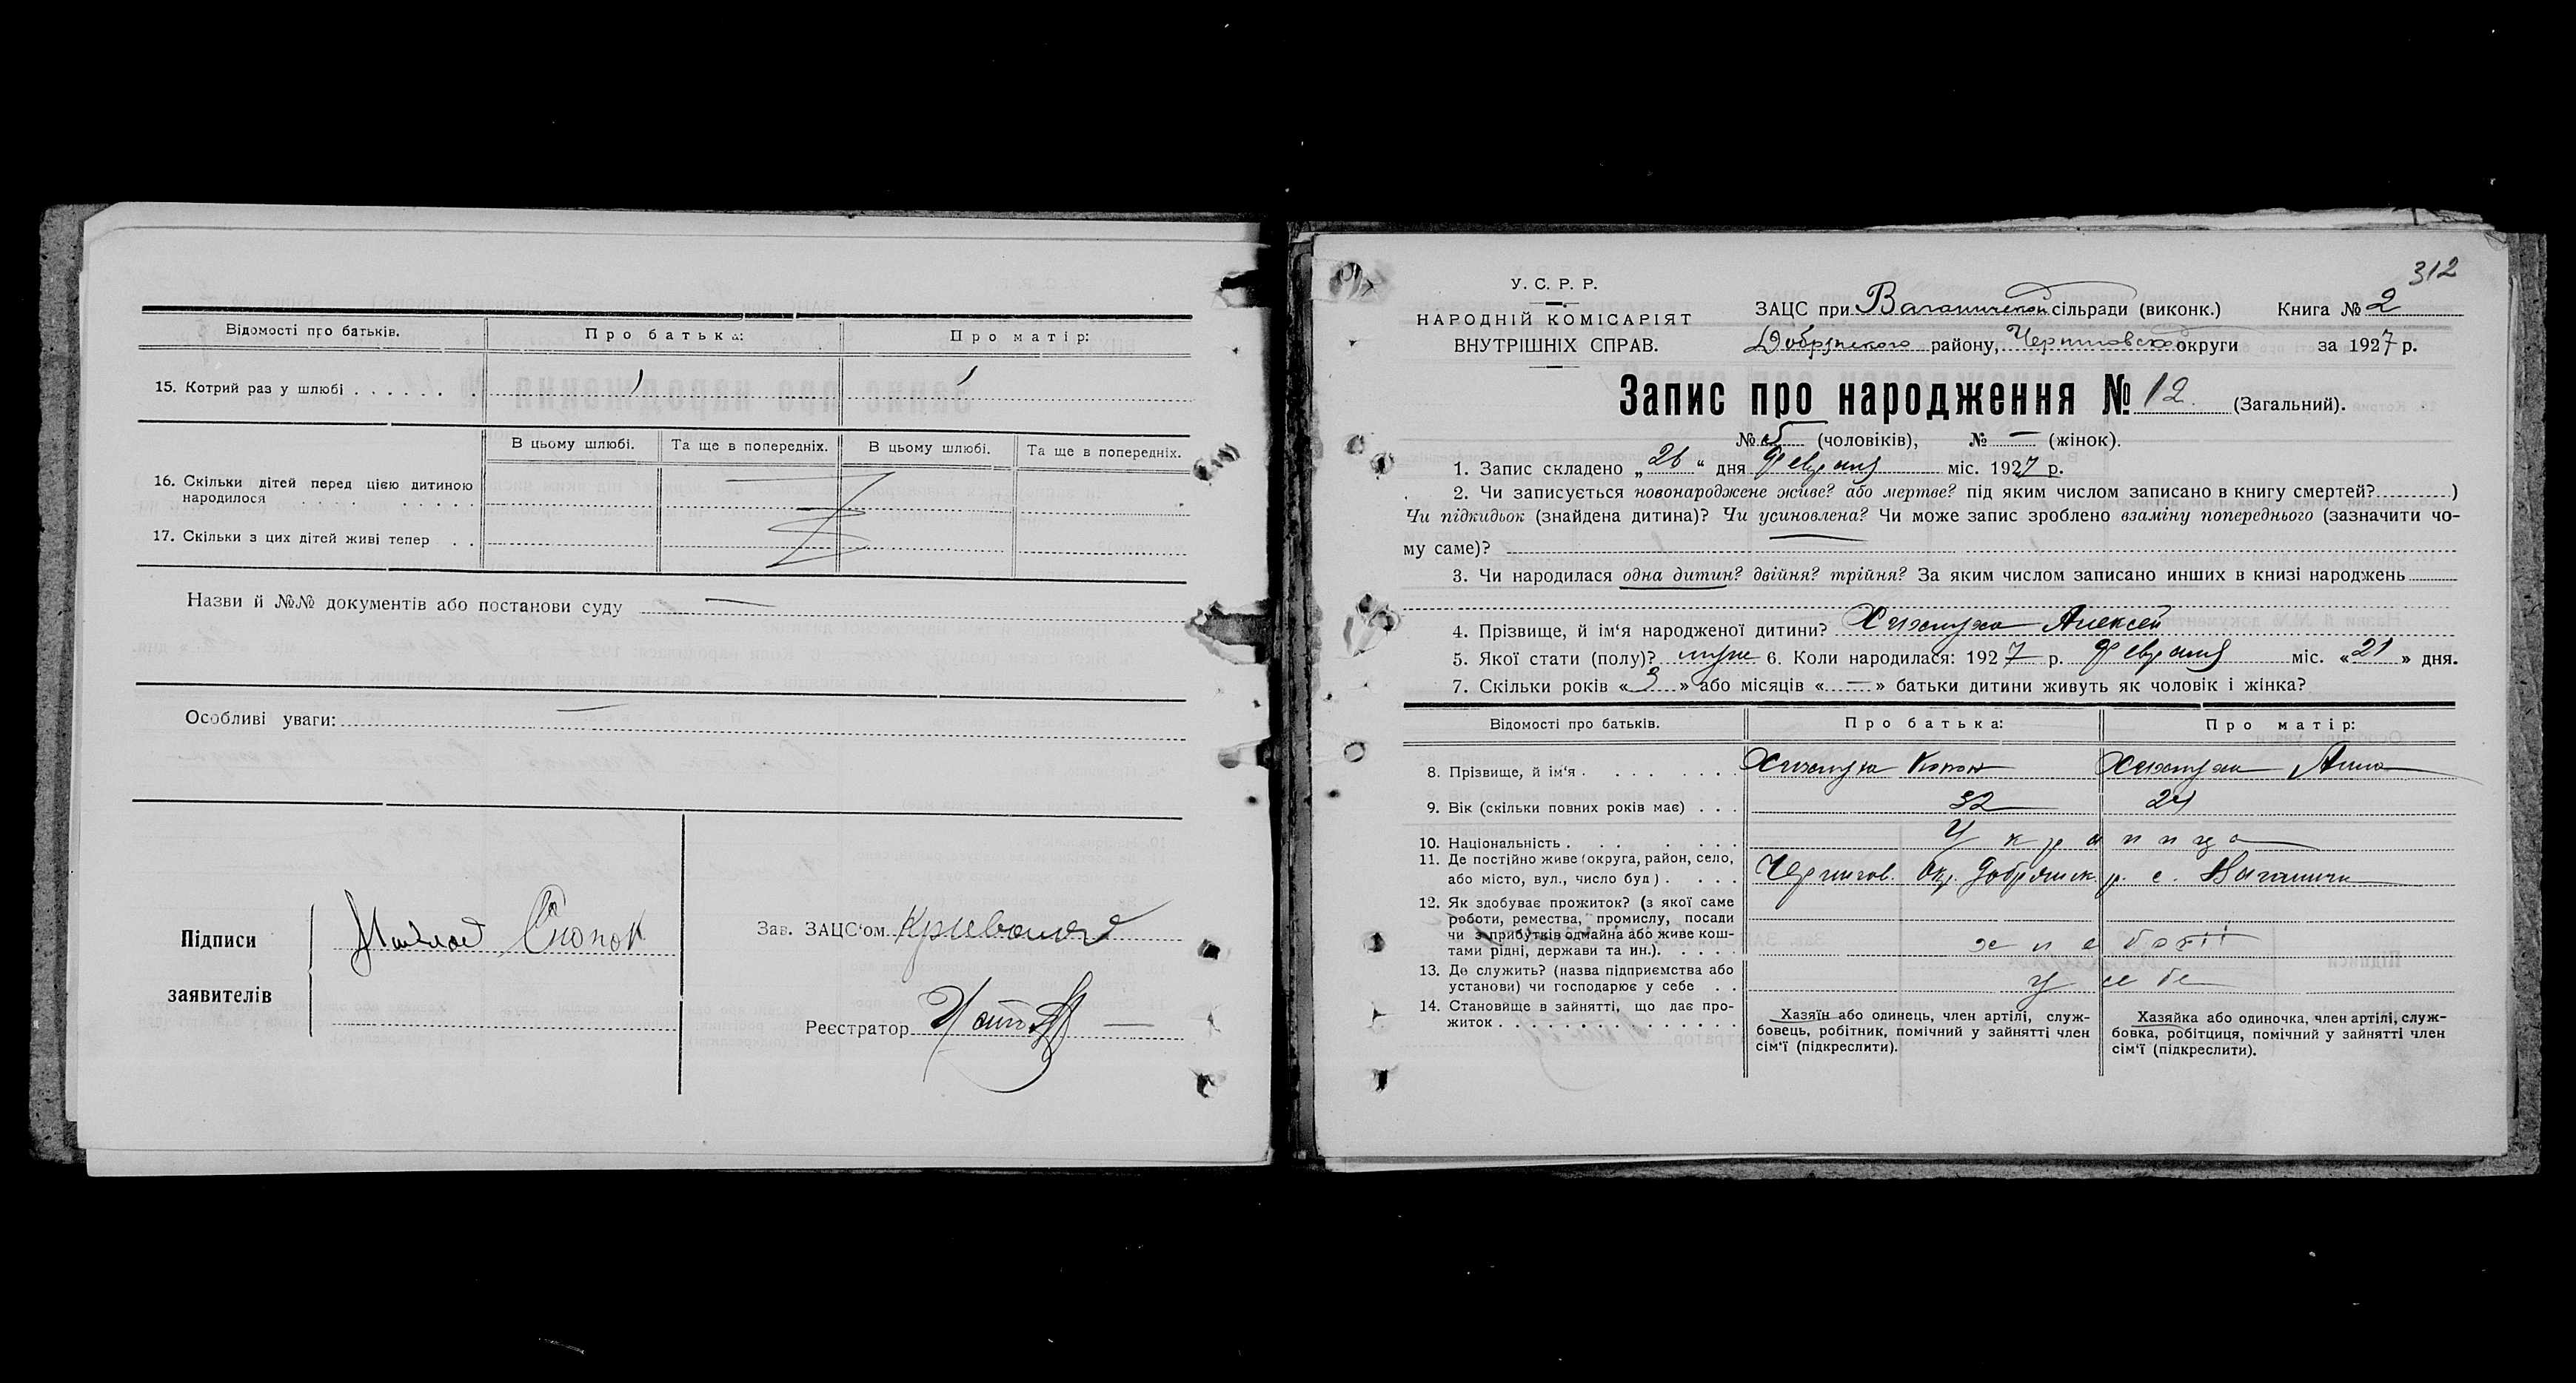 Відомості про батьків.
Про батька:
Про матір:
15. Котрий раз у шлюбі . . . . . . .
1
1
В цьому шлюбі.
Та ще в попередніх.
В цьому шлюбі.
Та ще в попередніх.
16. Скільки дітей перед цією дитиною
народилося . . . . . . . . .
17. Скільки з цих дітей живі тепер . .
Назви й №№ документів або постанови суду —
Особливі уваги: —
Підписи
заявителів
Зав. ЗАЦС'ом
Реєстратор
312
У. С. Р. Р.
НАРОДНІЙ КОМІСАРІЯТ
ВНУТРІШНІХ СПРАВ.
ЗАЦС при сільради (виконк.) Книга № 2
району, округи за 1927 р.
Запис про народження № 12. (Загальний).
№ 5 (чоловіків), № — (жінок).
1. Запис складено „26" дня Февраля міс. 1927 р.
2. Чи записується новонароджене живе? або мертве? під яким числом записано в книгу смертей? )
Чи підкидьок (знайдена дитина)? Чи усиновлена? Чи може запис зроблено взаміну попереднього (зазначити чо-
му саме)?
3. Чи народилася одна дитин? двійня? трійня? За яким числом записано инших в книзі народжень
4. Прізвище, й ім'я народженої дитини? Алексей
5. Якої стати (полу)? муж 6. Коли народилася: 1927 р. Февраля міс. «21» дня.
7. Скільки років «3» або місяців «—» батьки дитини живуть як чоловік і жінка?
Відомості про батьків.
Про батька:
Про матір:
8. Прізвище, й ім'я . . . . . . .
Анна
9. Вік (скільки повних років має) . . .
32
24
10. Національність . . . . . . .
11. Де постійно живе (округа, район, село,
або місто, вул., число буд) . . . . .
Чернигов. Окр. Добрянск. р. с.
12. Як здобуває прожиток? (з якої саме
роботи, ремества, промислу, посади
чи з прибутків одмайна або живе кош-
тами рідні, держави та ин.). . . . .
13. Де служить? (назва підприємства або
установи) чи господарює у себе . .
у себе
14. Становище в зайнятті, що дає про-
житок . . . . . . . . . . . . . .
Хазяїн або одинець, член артілі, служ-
бовець, робітник, помічний у зайнятті член
сім'ї (підкреслити).
Хазяйка або одиночка, член артілі, служ-
бовка, робітциця, помічний у зайнятті член
сім'ї (підкреслити).